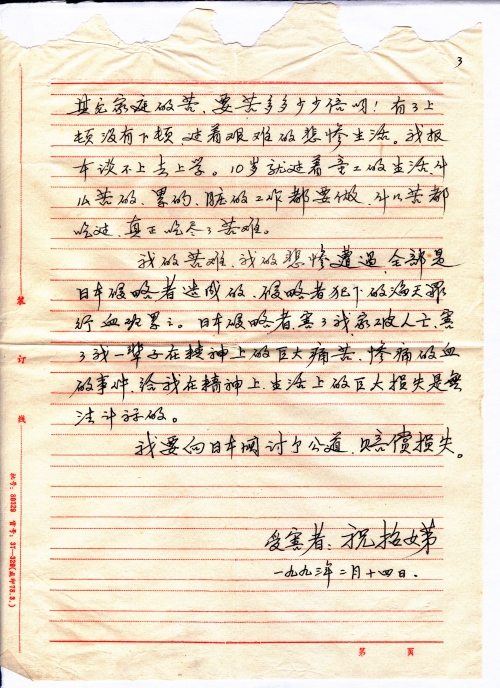 3
其它家庭的苦，要苦多多少少倍啊！有了上
顿没有下顿，过着艰难的悲惨生活。我根
本谈不上去上学。10岁就过着童工的生活，什
么苦的、累的、脏的工作都要做，什么苦都
吃过，真正吃尽了苦难。
我的苦难，我的悲惨遭遇，全部是
日本侵略者造成的，侵略者犯下的滔天罪
行血班累之。日本侵略者，害了我家破人亡，害
了我一辈子在精神上的巨大痛苦，惨痛的血
的事件，给我在精神上、生活上的巨大损失是无
法计算的。
我要向日本国讨个公道，赔偿损失。
受害者：祝招娣
一九九三年二月十四日.
装
订
线
批号：80329 货号：31—329(成印78.3.)
第 页